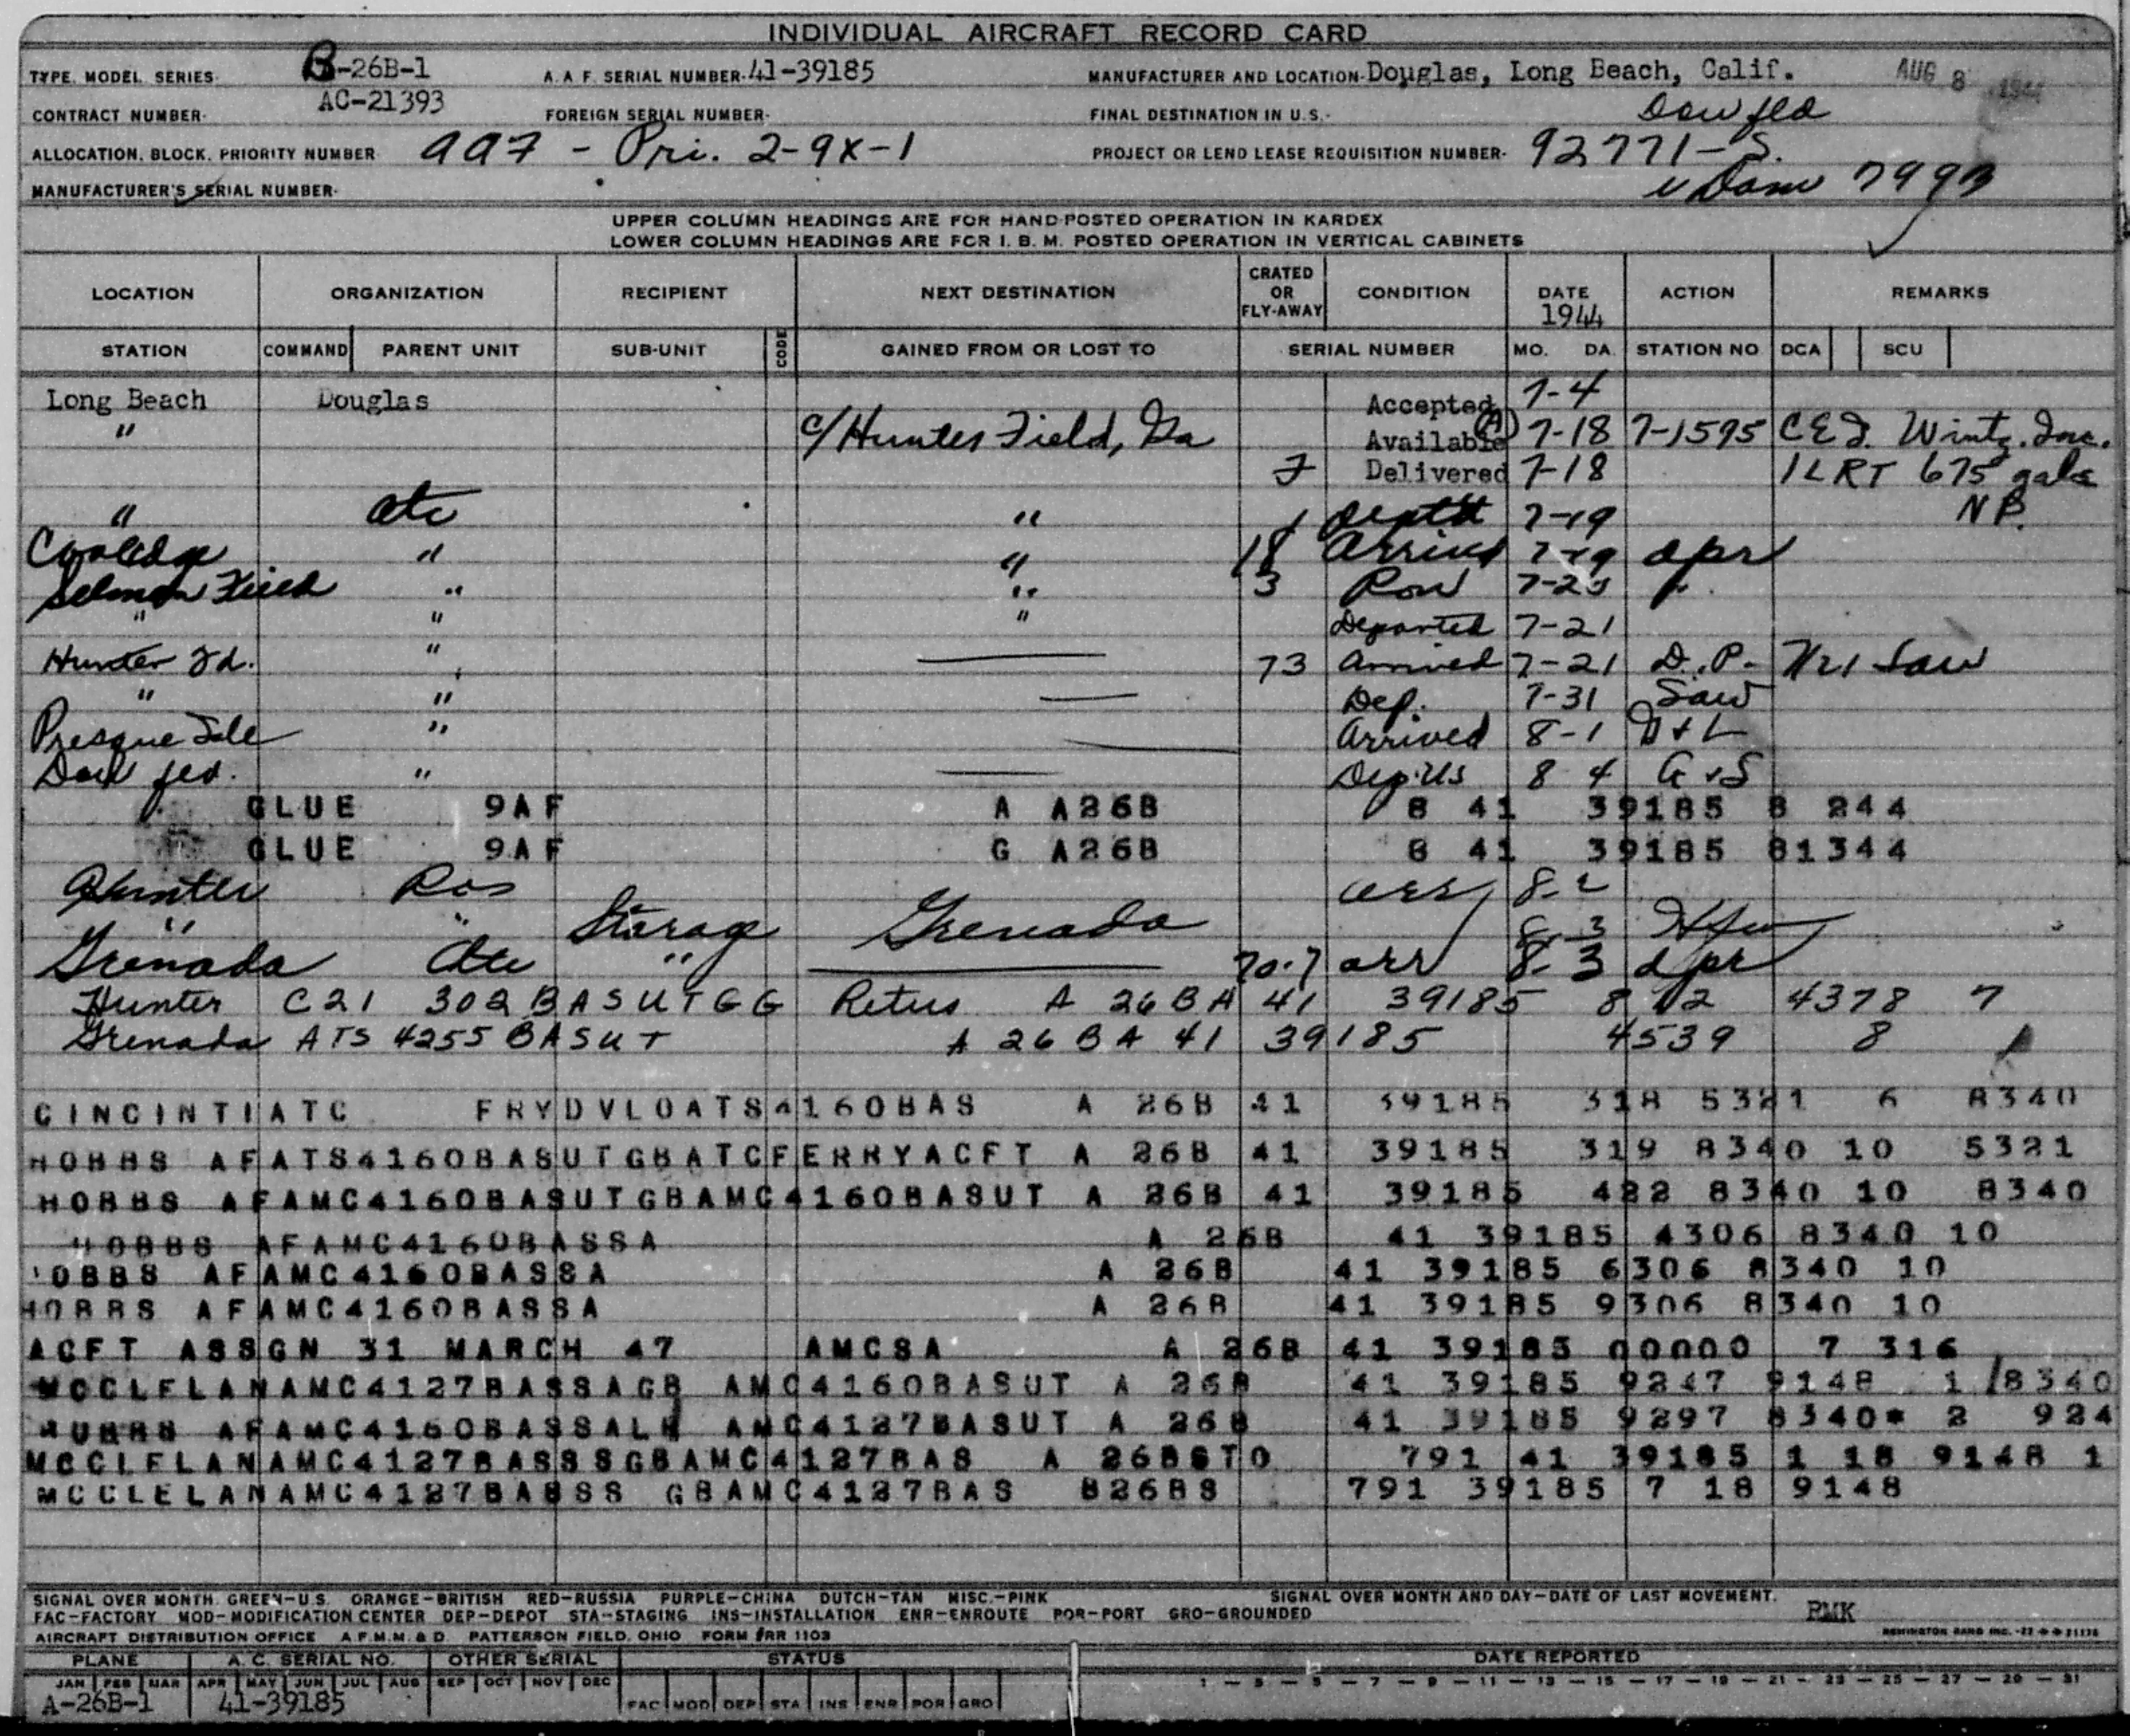 INDIVIDUAL AIRCRAFT RECORD CARD
TYPE, MODEL, SERIES- B-26B-1 A. A. F. SERIAL NUMBER- 41-39185 MANUFACTURER AND LOCATION- Douglas, Long Beach, Calif. AUG 8 1944
CONTRACT NUMBER- AC-21393 FOREIGN SERIAL NUMBER- FINAL DESTINATION IN U.S.- Dow fld
ALLOCATION, BLOCK, PRIORITY NUMBER 997 - Pri. 2-9X-1 PROJECT OR LEND LEASE REQUISITION NUMBER- 92771-S.
MANUFACTURER'S SERIAL NUMBER-
UPPER COLUMN HEADINGS ARE FOR HAND-POSTED OPERATION IN KARDEX
LOWER COLUMN HEADINGS ARE FOR I. B. M. POSTED OPERATION IN VERTICAL CABINETS
LOCATION ORGANIZATION RECIPIENT NEXT DESTINATION CRATED OR FLY-AWAY CONDITION DATE 1944 ACTION REMARKS
STATION COMMAND PARENT UNIT SUB-UNIT CODE GAINED FROM OR LOST TO SERIAL NUMBER MO. DA. STATION NO DCA SCU
Long Beach Douglas Accepted 7-4
" c/Hunter Field, Ga Available (A) 7-18 7-1595 CEF. Wintz. Inc.
7 Delivered 7-18 1LRT 675 gals
" atc " 7-19 NP.
Coolidge " " 18 Arrived 7-19 dpr
Selman Field " " 3 Ron
" " " Departed 7-21
Hunter Fd. " 73 Arrived 7-21 D.P. 7/21 Saw
" " Dep. 7-31 Saw
Presque Isle " Arrived 8-1
Dow fld. " Dep. US 8 4 G+S
GLUE 9AF A A26B 8 41 39185 8 244
GLUE 9AF G A26B 8 41 39185 81344
Hunter arr 8-2
" " Storage Grenada 8-3
Grenada Atc " 70-7 arr 8-3 dpr
Hunter C21 302BASUTGG Retus A 26BA 41 39185 8 12 4378 7
Grenada ATS 4255BASUT A 26BA 41 39185 4539 8
CINCINTIATC FRYDVLOATS4160BAS A 26B 41 39185 318 5321 6 8340
HOBBS AFATS4160BASUTGBATCFERRYACFT A 26B 41 39185 319 8340 10 5321
HOBBS AFAMC4160BASUTGBAMC4160BASUT A 26B 41 39185 422 8340 10 8340
HOBBS AFAMC4160BASSA A 26B 41 39185 4306 8340 10
HOBBS AFAMC4160BASSA A 26B 41 39185 6306 8340 10
HOBBS AFAMC4160BASSA A 26B 41 39185 9306 8340 10
ACFT ASSGN 31 MARCH 47 AMCSA A 26B 41 39185 00000 7 316
MCCLELANAMC4127BASSAGB AMC4160BASUT A 26B 41 39185 9247 9148 1 8340
HOBBS AFAMC4160BASSALH AMC4127BASUT A 26B 41 39185 9297 8340* 2 924
MCCLELANAMC4127BASSSGBAMC4127BAS A 26BSTO 791 41 39185 1 18 9148 1
MCCLELANAMC4127BASSS GBAMC4127BAS B26BS 791 39185 7 18 9148
SIGNAL OVER MONTH. GREEN-U.S. ORANGE-BRITISH RED-RUSSIA PURPLE-CHINA DUTCH-TAN MISC.-PINK SIGNAL OVER MONTH AND DAY-DATE OF LAST MOVEMENT.
FAC-FACTORY MOD-MODIFICATION CENTER DEP-DEPOT STA-STAGING INS-INSTALLATION ENR-ENROUTE POR-PORT GRO-GROUNDED RMK
AIRCRAFT DISTRIBUTION OFFICE A F.M.M. & D. PATTERSON FIELD, OHIO FORM #RR 1103 REMINGTON RAND INC.
PLANE A. C. SERIAL NO. OTHER SERIAL STATUS DATE REPORTED
JAN FEB MAR APR MAY JUN JUL AUG SEP OCT NOV DEC 1 - 3 - 5 - 7 - 9 - 11 - 13 - 15 - 17 - 19 - 21 - 23 - 25 - 27 - 29 - 31
A-26B-1 41-39185 FAC MOD DEP STA INS ENR POR GRO